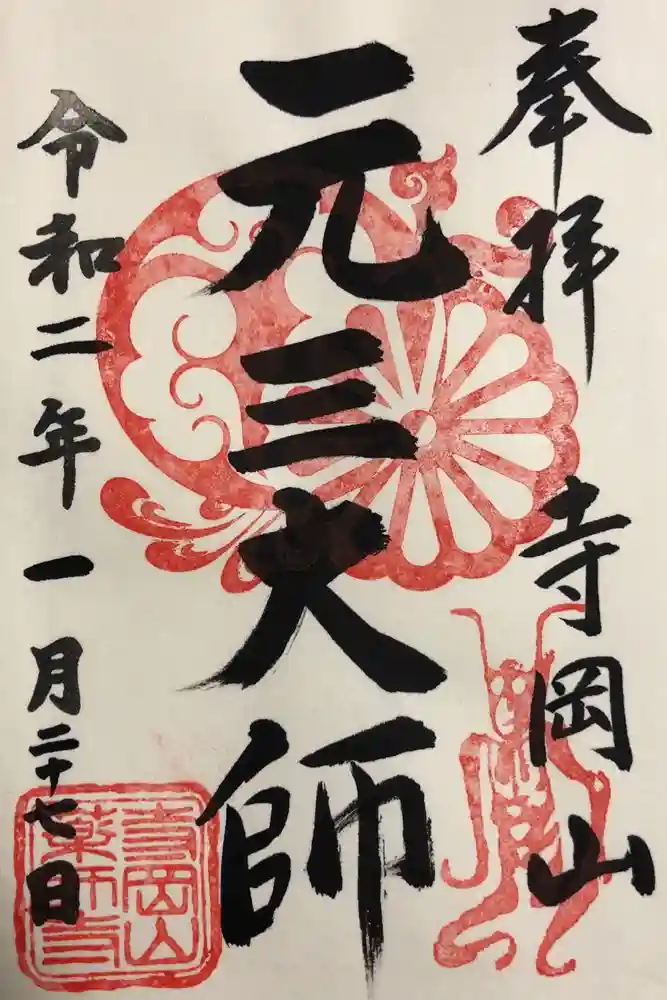 奉拝 寺岡山
元三大師
令和二年一月二十七日
寺岡山
薬師寺